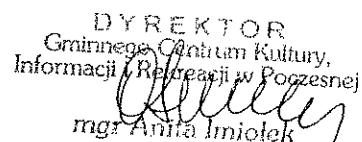 DYREKTOR
Gminnego Centrum Kultury,
Informacji i Rekreacji w Poczesnej
mgr Anita Imiołek